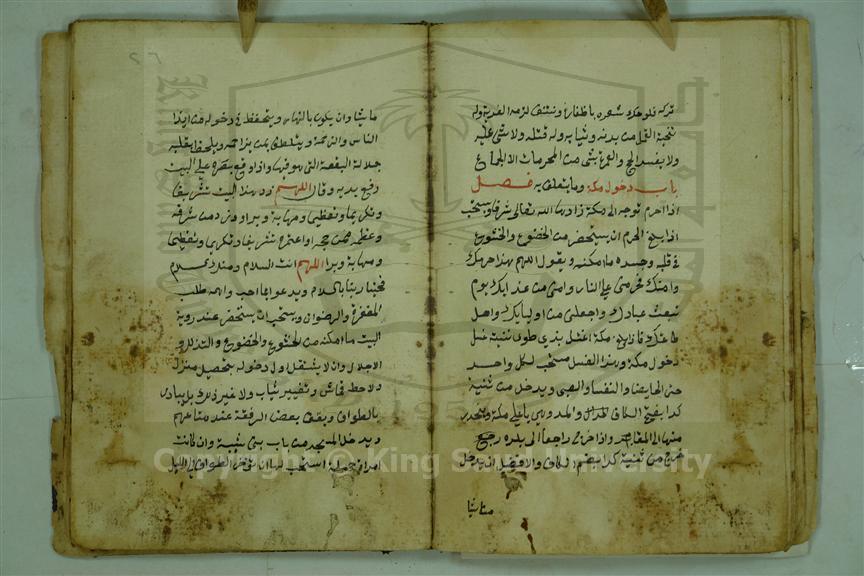 تركه فلو حك شعره باظفاره ونتف لزمه الفدية وله
تنحية القمل من بدنه وثيابه وله قتله ولا شي عليه
ولا يفسد الحج والعمرة بشي من المحرمات الا الجماع
باب دخول مكة وما يتعلق به فصل
اذا احرم توجه الى مكة زادها الله تعالى شرفا ويستحب
اذا بلغ الحرم ان يستحضر من الخضوع والخشوع
في قلبه وجسده ما امكنه ويقول اللهم هذا حرمك
وامنك فحرمني على النار وامني من عذابك يوم
تبعث عبادك واجعلني من اوليائك واهل
طاعتك فاذا بلغ مكة اغتسل بذي طوى بنية غسل
دخول مكة وهذا الغسل مستحب لكل واحد
حتى الحايض والنفسا والصبي ويدخل من ثنية
كدا بفتح الكاف والمد وهي باعلى مكة وينحدر
منها الى المقابر واذا خرج راجعا الى بلده رجع
خرج من ثنية كدا بضم الكاف والافضل ان يدخل
ماشيا
ماشيا وان يكون بالنهار ويتحفظ في دخوله من ايذا
الناس والزحمة ويتلطف بمن يزاحمه ويلحظ بقلبه
جلالة البقعة التي هو فيها واذا وقع بصره على البيت
رفع يديه وقال اللهم زد هذا البيت تشريفا
وتكريما وتعظيما ومهابة وبرا وزد من شرفه
وعظمه ممن حجه او اعتمره تشريفا وتكريما وتعظيما
ومهابة وبرا اللهم انت السلام ومنك السلام
فحينا ربنا بالسلام ويدعو بما احب واهمه طلب
المغفرة والرضوان ويستحب ان يستحضر عند روية
البيت ما امكنه من الخشوع والخضوع والتذلل و
الاجلال وان لا يشتغل اول دخوله بتحصيل منزل
ولا حط قماش وتغيير ثياب ولا غير ذلك بل يبادر
بالطواف ويقف بعض الرفقة عند متاعهم
ويدخل المسجد من باب بني شيبة وان كانت
امراة جميلة استحب لها ان تؤخر الطواف الى الليل
Copyright © King Saud University
1957